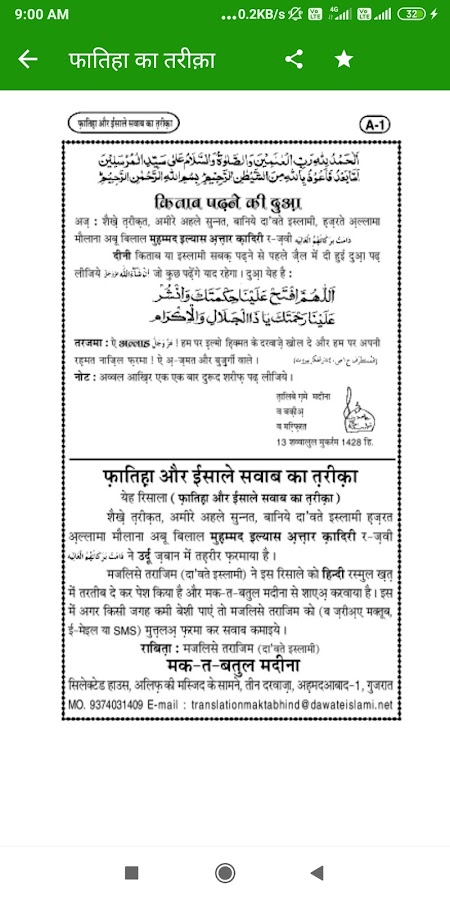 9:00 AM
...0.2KB/s Vo LTE 4G Vo LTE 32
फातिहा का तरीक़ा
फ़ातिहा और ईसाले सवाब का त़रीक़ा
A-1
اَلْحَمْدُ لِلّٰهِ رَبِّ الْعٰلَمِيْنَ وَالصَّلٰوةُ وَالسَّلَامُ عَلٰى سَيِّدِ الْمُرْسَلِيْنَ
اَمَّا بَعْدُ فَاَعُوْذُ بِاللّٰهِ مِنَ الشَّيْطٰنِ الرَّجِيْمِ بِسْمِ اللّٰهِ الرَّحْمٰنِ الرَّحِيْمِ
किताब पढ़ने की दुआ
अज़ : शैख़े त़रीक़त, अमीरे अहले सुन्नत, बानिये दा'वते इस्लामी, ह़ज़रते अ़ल्लामा
मौलाना अबू बिलाल मुह़म्मद इल्यास अ़त्त़ार क़ादिरी र-ज़वी دَامَتْ بَرَكَاتُهُمُ الْعَالِيَه
दीनी किताब या इस्लामी सबक़ पढ़ने से पहले ज़ैल में दी हुई दुआ पढ़
लीजिये اِنْ شَآءَاللّٰه عَزَّوَجَلَّ जो कुछ पढ़ेंगे याद रहेगा। दुआ यह है :
اَللّٰهُمَّ افْتَحْ عَلَيْنَا حِكْمَتَكَ وَانْشُرْ
عَلَيْنَا رَحْمَتَكَ يَا ذَا الْجَلَالِ وَالْاِكْرَام
तरजमा : ऐ अल्लाह عَزَّوَجَلَّ ! हम पर इ़ल्मो ह़िक्मत के दरवाज़े खोल दे और हम पर अपनी
रह़मत नाज़िल फ़रमा ! ऐ अ़-ज़मत और बुज़ुर्गी वाले।
नोट : अव्वल आख़िर एक एक बार दुरूद शरीफ़ पढ़ लीजिये।
त़ालिबे ग़मे मदीना
व बक़ीअ़
व मग़्फ़िरत
13 शव्वालुल मुकर्रम 1428 हि.
फ़ातिह़ा और ईसाले सवाब का त़रीक़ा
येह रिसाला ( फ़ातिह़ा और ईसाले सवाब का त़रीक़ा )
शैख़े त़रीक़त, अमीरे अहले सुन्नत, बानिये दा'वते इस्लामी ह़ज़रत
अ़ल्लामा मौलाना अबू बिलाल मुह़म्मद इल्यास अ़त्त़ार क़ादिरी र-ज़वी
دَامَتْ بَرَكَاتُهُمُ الْعَالِيَه ने उर्दू ज़बान में तह़रीर फ़रमाया है।
मजलिसे तराजिम (दा'वते इस्लामी) ने इस रिसाले को हिन्दी रस्मुल ख़त़
में तरतीब दे कर पेश किया है और मक-त-बतुल मदीना से शाएअ़ करवाया है। इस
में अगर किसी जगह कमी बेशी पाएं तो मजलिसे तराजिम को (ब ज़रीअ़ए मक्तूब,
ई-मेइल या SMS) मुत्त़लअ़ फ़रमा कर सवाब कमाइये।
राबित़ा : मजलिसे तराजिम (दा'वते इस्लामी)
मक-त-बतुल मदीना
सिलेक्टेड हाउस, अलिफ़ की मस्जिद के सामने, तीन दरवाज़ा, अह़मदआबाद-1, गुजरात
MO. 9374031409 E-mail : translationmaktabhind@dawateislami.net